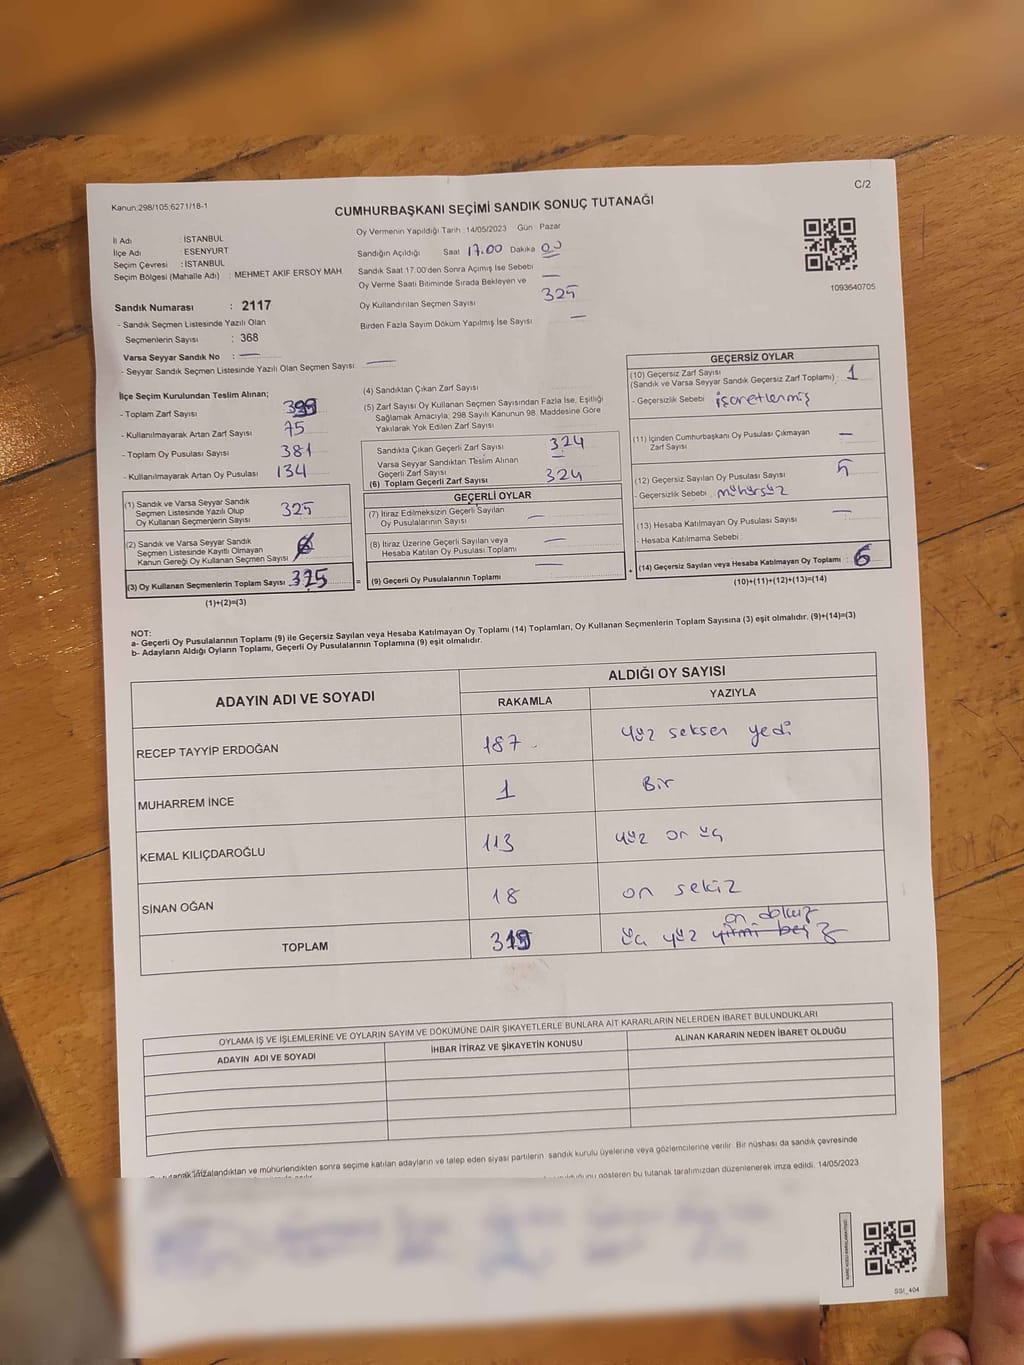 C/2
Kanun:298/105:6271/18-1
CUMHURBAŞKANI SEÇİMİ SANDIK SONUÇ TUTANAĞI
İl Adı : İSTANBUL
İlçe Adı : ESENYURT
Seçim Çevresi : İSTANBUL
Seçim Bölgesi (Mahalle Adı) : MEHMET AKİF ERSOY MAH.
Oy Vermenin Yapıldığı Tarih : 14/05/2023 Gün Pazar
Sandığın Açıldığı Saat 17.00 Dakika 00
Sandık Saat 17.00'den Sonra Açımış İse Sebebi —
Oy Verme Saati Bitiminde Sırada Bekleyen ve
Oy Kullandırılan Seçmen Sayısı 325
Birden Fazla Sayım Döküm Yapılmış İse Sayısı —
1093640705
Sandık Numarası : 2117
- Sandık Seçmen Listesinde Yazılı Olan
Seçmenlerin Sayısı : 368
Varsa Seyyar Sandık No : —
- Seyyar Sandık Seçmen Listesinde Yazılı Olan Seçmen Sayısı: —
İlçe Seçim Kurulundan Teslim Alınan;
- Toplam Zarf Sayısı
- Kullanılmayarak Artan Zarf Sayısı 75
- Toplam Oy Pusulası Sayısı 381
- Kullanılmayarak Artan Oy Pusulası 134
(1) Sandık ve Varsa Seyyar Sandık
Seçmen Listesinde Yazılı Olup
Oy Kullanan Seçmenlerin Sayısı 325
(2) Sandık ve Varsa Seyyar Sandık
Seçmen Listesinde Kayıtlı Olmayan
Kanun Gereği Oy Kullanan Seçmen Sayısı
(3) Oy Kullanan Seçmenlerin Toplam Sayısı 325
(1)+(2)=(3)
(4) Sandıktan Çıkan Zarf Sayısı
(5) Zarf Sayısı Oy Kullanan Seçmen Sayısından Fazla İse, Eşitliği
Sağlamak Amacıyla; 298 Sayılı Kanunun 98. Maddesine Göre
Yakılarak Yok Edilen Zarf Sayısı
Sandıkta Çıkan Geçerli Zarf Sayısı 324
Varsa Seyyar Sandıktan Teslim Alınan
Geçerli Zarf Sayısı —
(6) Toplam Geçerli Zarf Sayısı 324
GEÇERLİ OYLAR
(7) İtiraz Edilmeksizin Geçerli Sayılan
Oy Pusulalarının Sayısı —
(8) İtiraz Üzerine Geçerli Sayılan veya
Hesaba Katılan Oy Pusulası Toplamı —
= (9) Geçerli Oy Pusulalarının Toplamı —
GEÇERSİZ OYLAR
(10) Geçersiz Zarf Sayısı
(Sandık ve Varsa Seyyar Sandık Geçersiz Zarf Toplamı) 1
- Geçersizlik Sebebi işaretlenmiş
(11) İçinden Cumhurbaşkanı Oy Pusulası Çıkmayan
Zarf Sayısı —
(12) Geçersiz Sayılan Oy Pusulası Sayısı 5
- Geçersizlik Sebebi mühürsüz
(13) Hesaba Katılmayan Oy Pusulası Sayısı —
- Hesaba Katılmama Sebebi
+ (14) Geçersiz Sayılan veya Hesaba Katılmayan Oy Toplamı : 6
(10)+(11)+(12)+(13)=(14)
NOT:
a- Geçerli Oy Pusulalarının Toplamı (9) ile Geçersiz Sayılan veya Hesaba Katılmayan Oy Toplamı (14) Toplamları, Oy Kullanan Seçmenlerin Toplam Sayısına (3) eşit olmalıdır. (9)+(14)=(3)
b- Adayların Aldığı Oyların Toplamı, Geçerli Oy Pusulalarının Toplamına (9) eşit olmalıdır.
ADAYIN ADI VE SOYADI
ALDIĞI OY SAYISI
RAKAMLA YAZIYLA
RECEP TAYYİP ERDOĞAN 187 yüz seksen yedi
MUHARREM İNCE 1 Bir
KEMAL KILIÇDAROĞLU 113 yüz on üç
SİNAN OĞAN 18 on sekiz
on dokuz
TOPLAM 319 üç yüz yirmi beş
OYLAMA İŞ VE İŞLEMLERİNE VE OYLARIN SAYIM VE DÖKÜMÜNE DAİR ŞİKAYETLERLE BUNLARA AİT KARARLARIN NELERDEN İBARET BULUNDUKLARI
ADAYIN ADI VE SOYADI İHBAR İTİRAZ VE ŞİKAYETİN KONUSU ALINAN KARARIN NEDEN İBARET OLDUĞU
imzalandıktan ve mühürlendikten sonra seçime katılan adayların ve talep eden siyasi partilerin sandık kurulu üyelerine veya gözlemcilerine verilir. Bir nüshası da sandık çevresinde
gösteren bu tutanak tarafımızdan düzenlenerek imza edildi. 14/05/2023
SSI_404